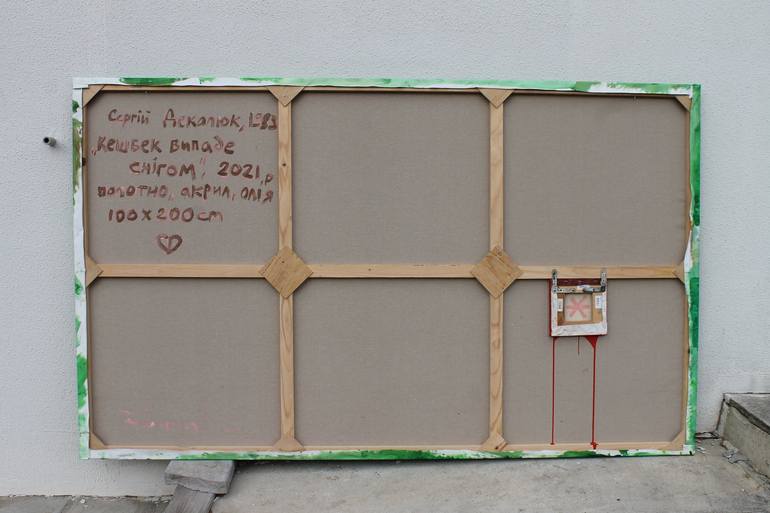 Сергій Декалюк, 1983
„Кешбек випаде
снігом", 2021,р
полотно, акрил, олія
100x200cm